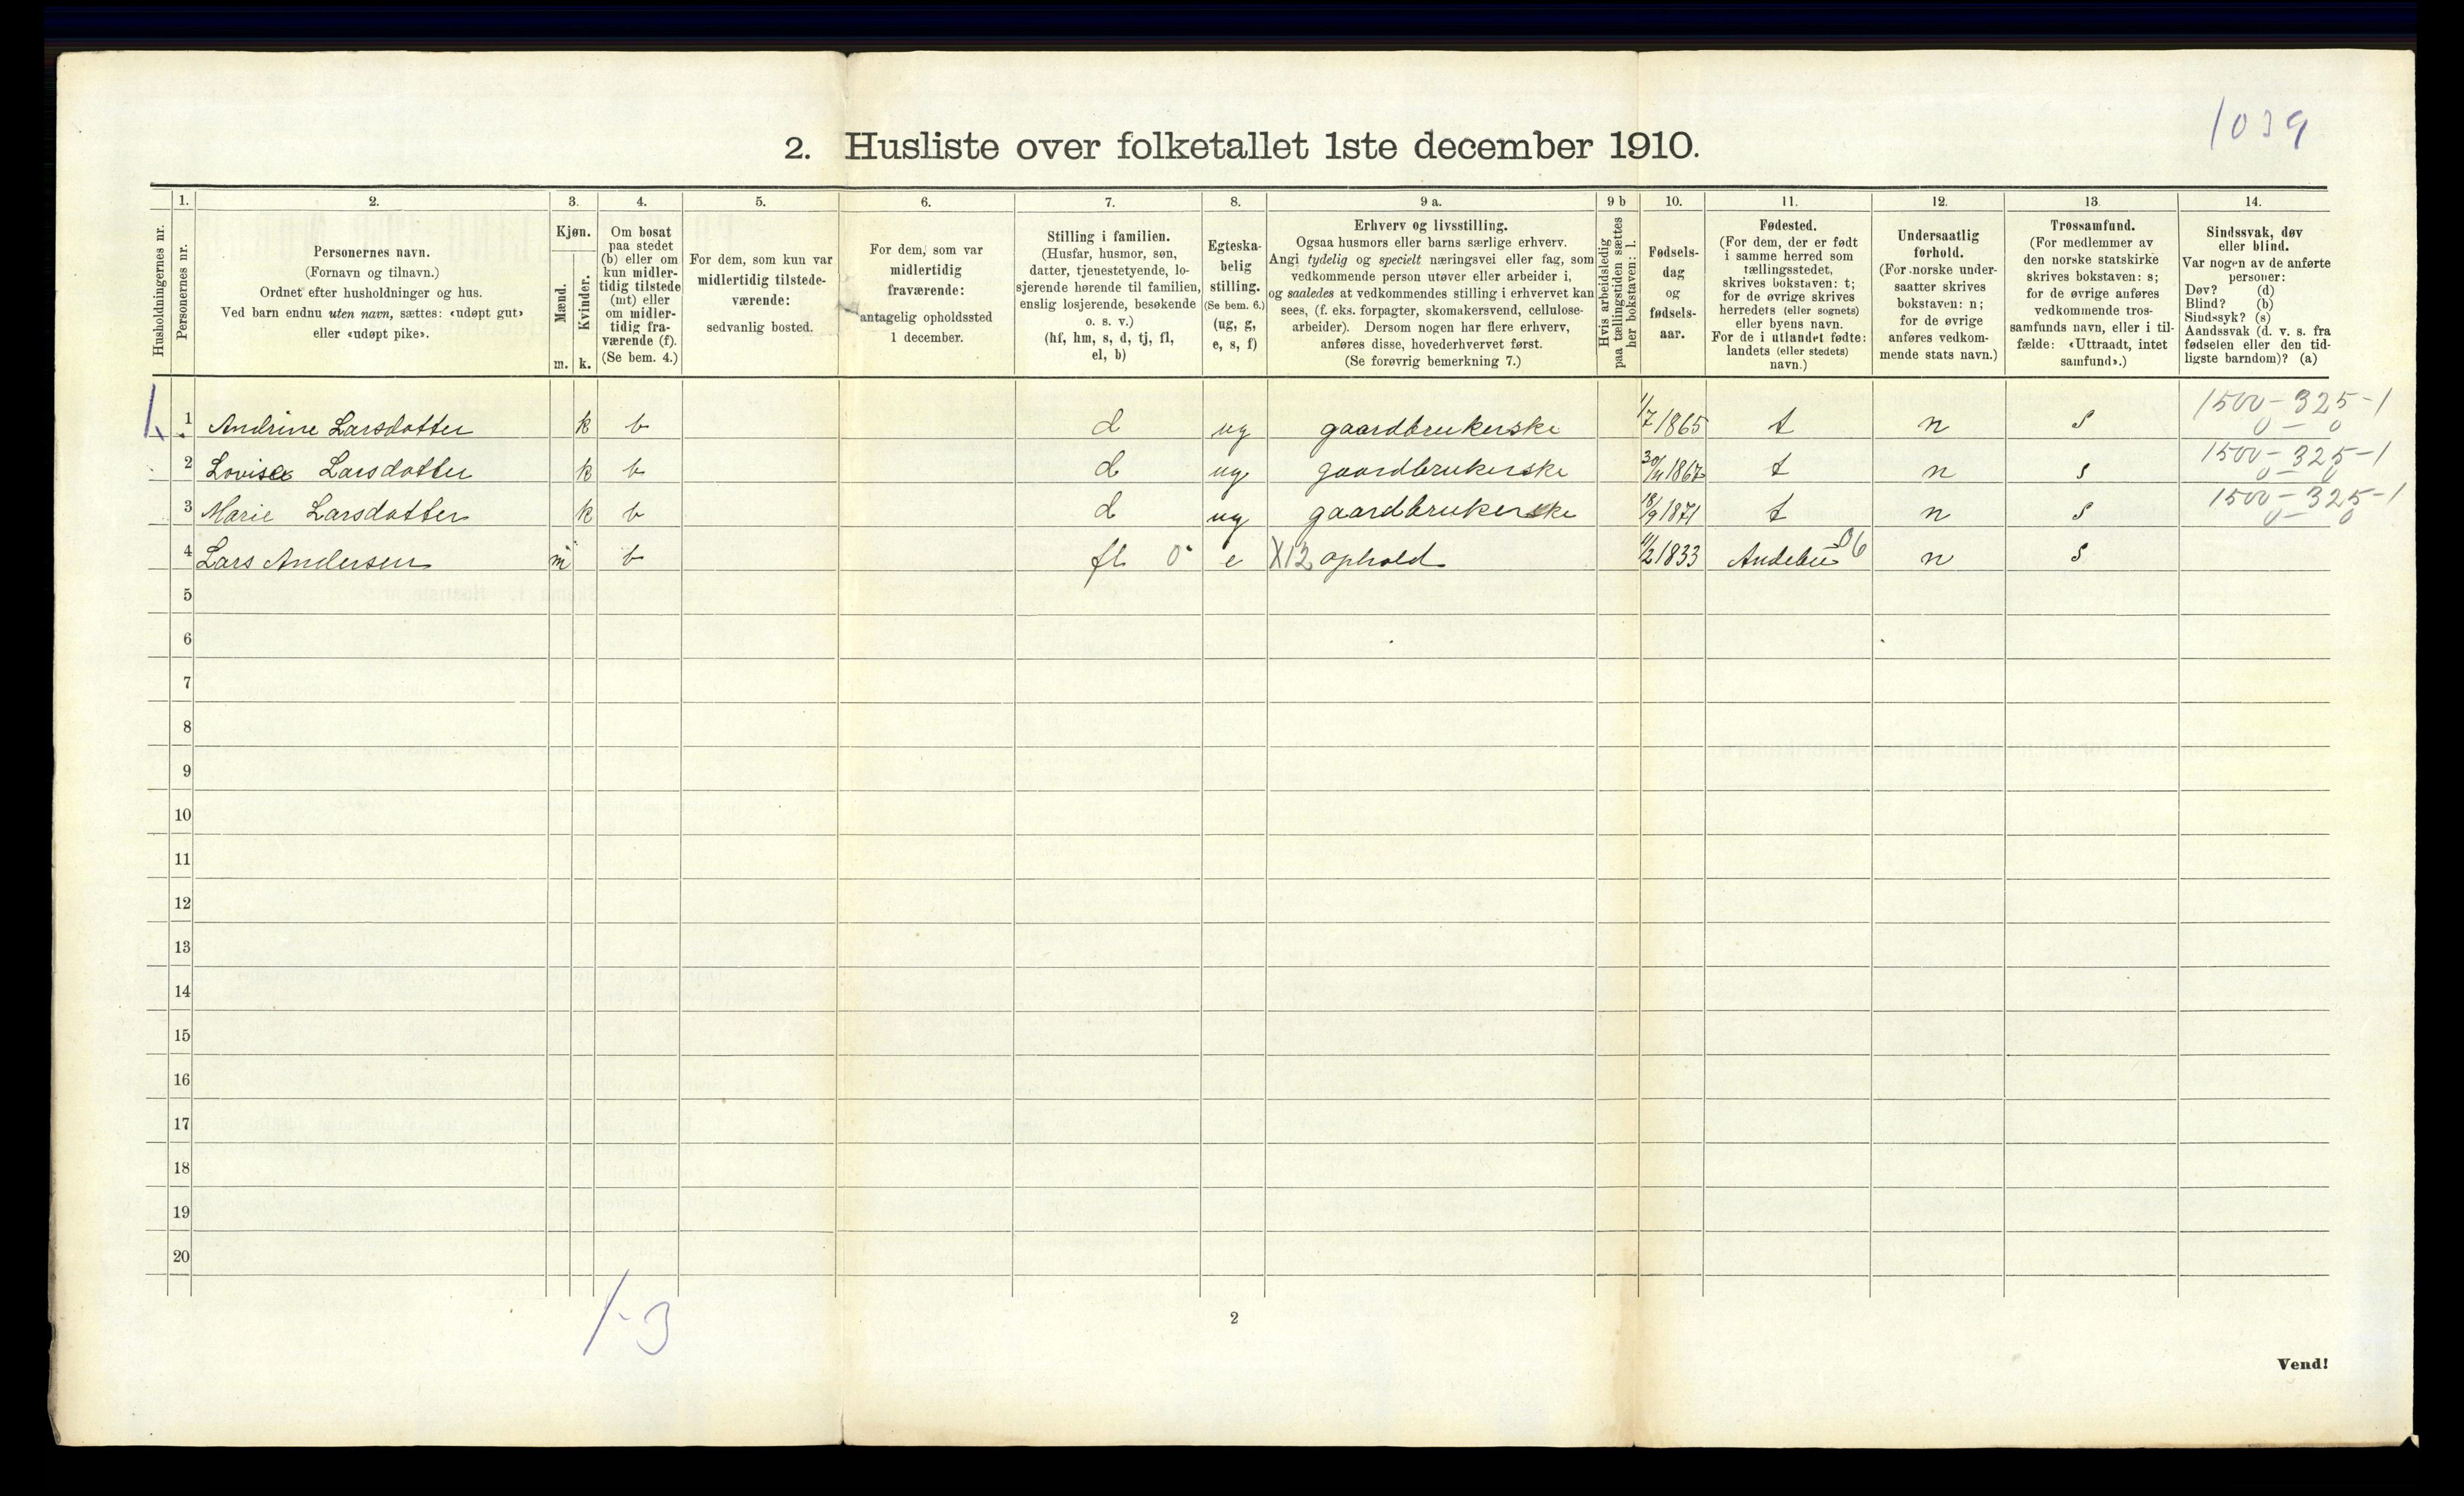 1039
2. Husliste over folketallet 1ste december 1910.
Husholdningernes nr.
1.
Personernes nr.
2.
Personernes navn.
(Fornavn og tilnavn.)
Ordnet efter husholdninger og hus.
Ved barn endnu uten navn, sættes: «udøpt gut»
eller «udøpt pike».
3.
Kjøn.
Mænd.
Kvinder.
m. k.
4.
Om bosat
paa stedet
(b) eller om
kun midler-
tidig tilstede
(mt) eller
om midler-
tidig fra-
værende (f).
(Se bem. 4.)
5.
For dem, som kun var
midlertidig tilstede-
værende:
sedvanlig bosted.
6.
For dem, som var
midlertidig
fraværende:
antagelig opholdssted
1 december.
7.
Stilling i familien.
(Husfar, husmor, søn,
datter, tjenestetyende, lo-
sjerende hørende til familien,
enslig losjerende, besøkende
o. s. v.)
(hf, hm, s, d, tj, fl,
el, b)
8.
Egteska-
belig
stilling.
(Se bem. 6.)
(ug, g,
e, s, f)
9 a.
Erhverv og livsstilling.
Ogsaa husmors eller barns særlige erhverv.
Angi tydelig og specielt næringsvei eller fag, som
vedkommende person utøver eller arbeider i,
og saaledes at vedkommendes stilling i erhvervet kan
sees, (f. eks. forpagter, skomakersvend, cellulose-
arbeider). Dersom nogen har flere erhverv,
anføres disse, hovederhvervet først.
(Se forøvrig bemerkning 7.)
9 b
Hvis arbeidsledig
paa tællingstiden sættes
her bokstaven: l.
10.
Fødsels-
dag
og
fødsels-
aar.
11.
Fødested.
(For dem, der er født
i samme herred som
tællingsstedet,
skrives bokstaven: t;
for de øvrige skrives
herredets (eller sognets)
eller byens navn.
For de i utlandet fødte:
landets (eller stedets)
navn.)
12.
Undersaatlig
forhold.
(For norske under-
saatter skrives
bokstaven: n;
for de øvrige
anføres vedkom-
mende stats navn.)
13.
Trossamfund.
(For medlemmer av
den norske statskirke
skrives bokstaven: s;
for de øvrige anføres
vedkommende tros-
samfunds navn, eller i til-
fælde: «Uttraadt, intet
samfund».)
14.
Sindssvak, døv
eller blind.
Var nogen av de anførte
personer:
Døv? (d)
Blind? (b)
Sindssyk? (s)
Aandssvak (d. v. s. fra
fødselen eller den tid-
ligste barndom)? (a)
1. 1 Andrine Larsdatter k b d ug gaardbrukerske 1/7 1865 t n s 1500-325-1
0-0
2 Lovise Larsdatter k b d ug gaardbrukerske 30/11 1867 t n s 1500-325-1
0-0
3 Marie Larsdatter k b d ug gaardbrukerske 18/9 1871 t n s 1500-325-1
0-0
4 Lars Andersen m b fl 0 e X12 ophold 11/2 1833 Andebu 06 n s
5
6
7
8
9
10
11
12
13
14
15
16
17
18
19
20
1-3
2
Vend!